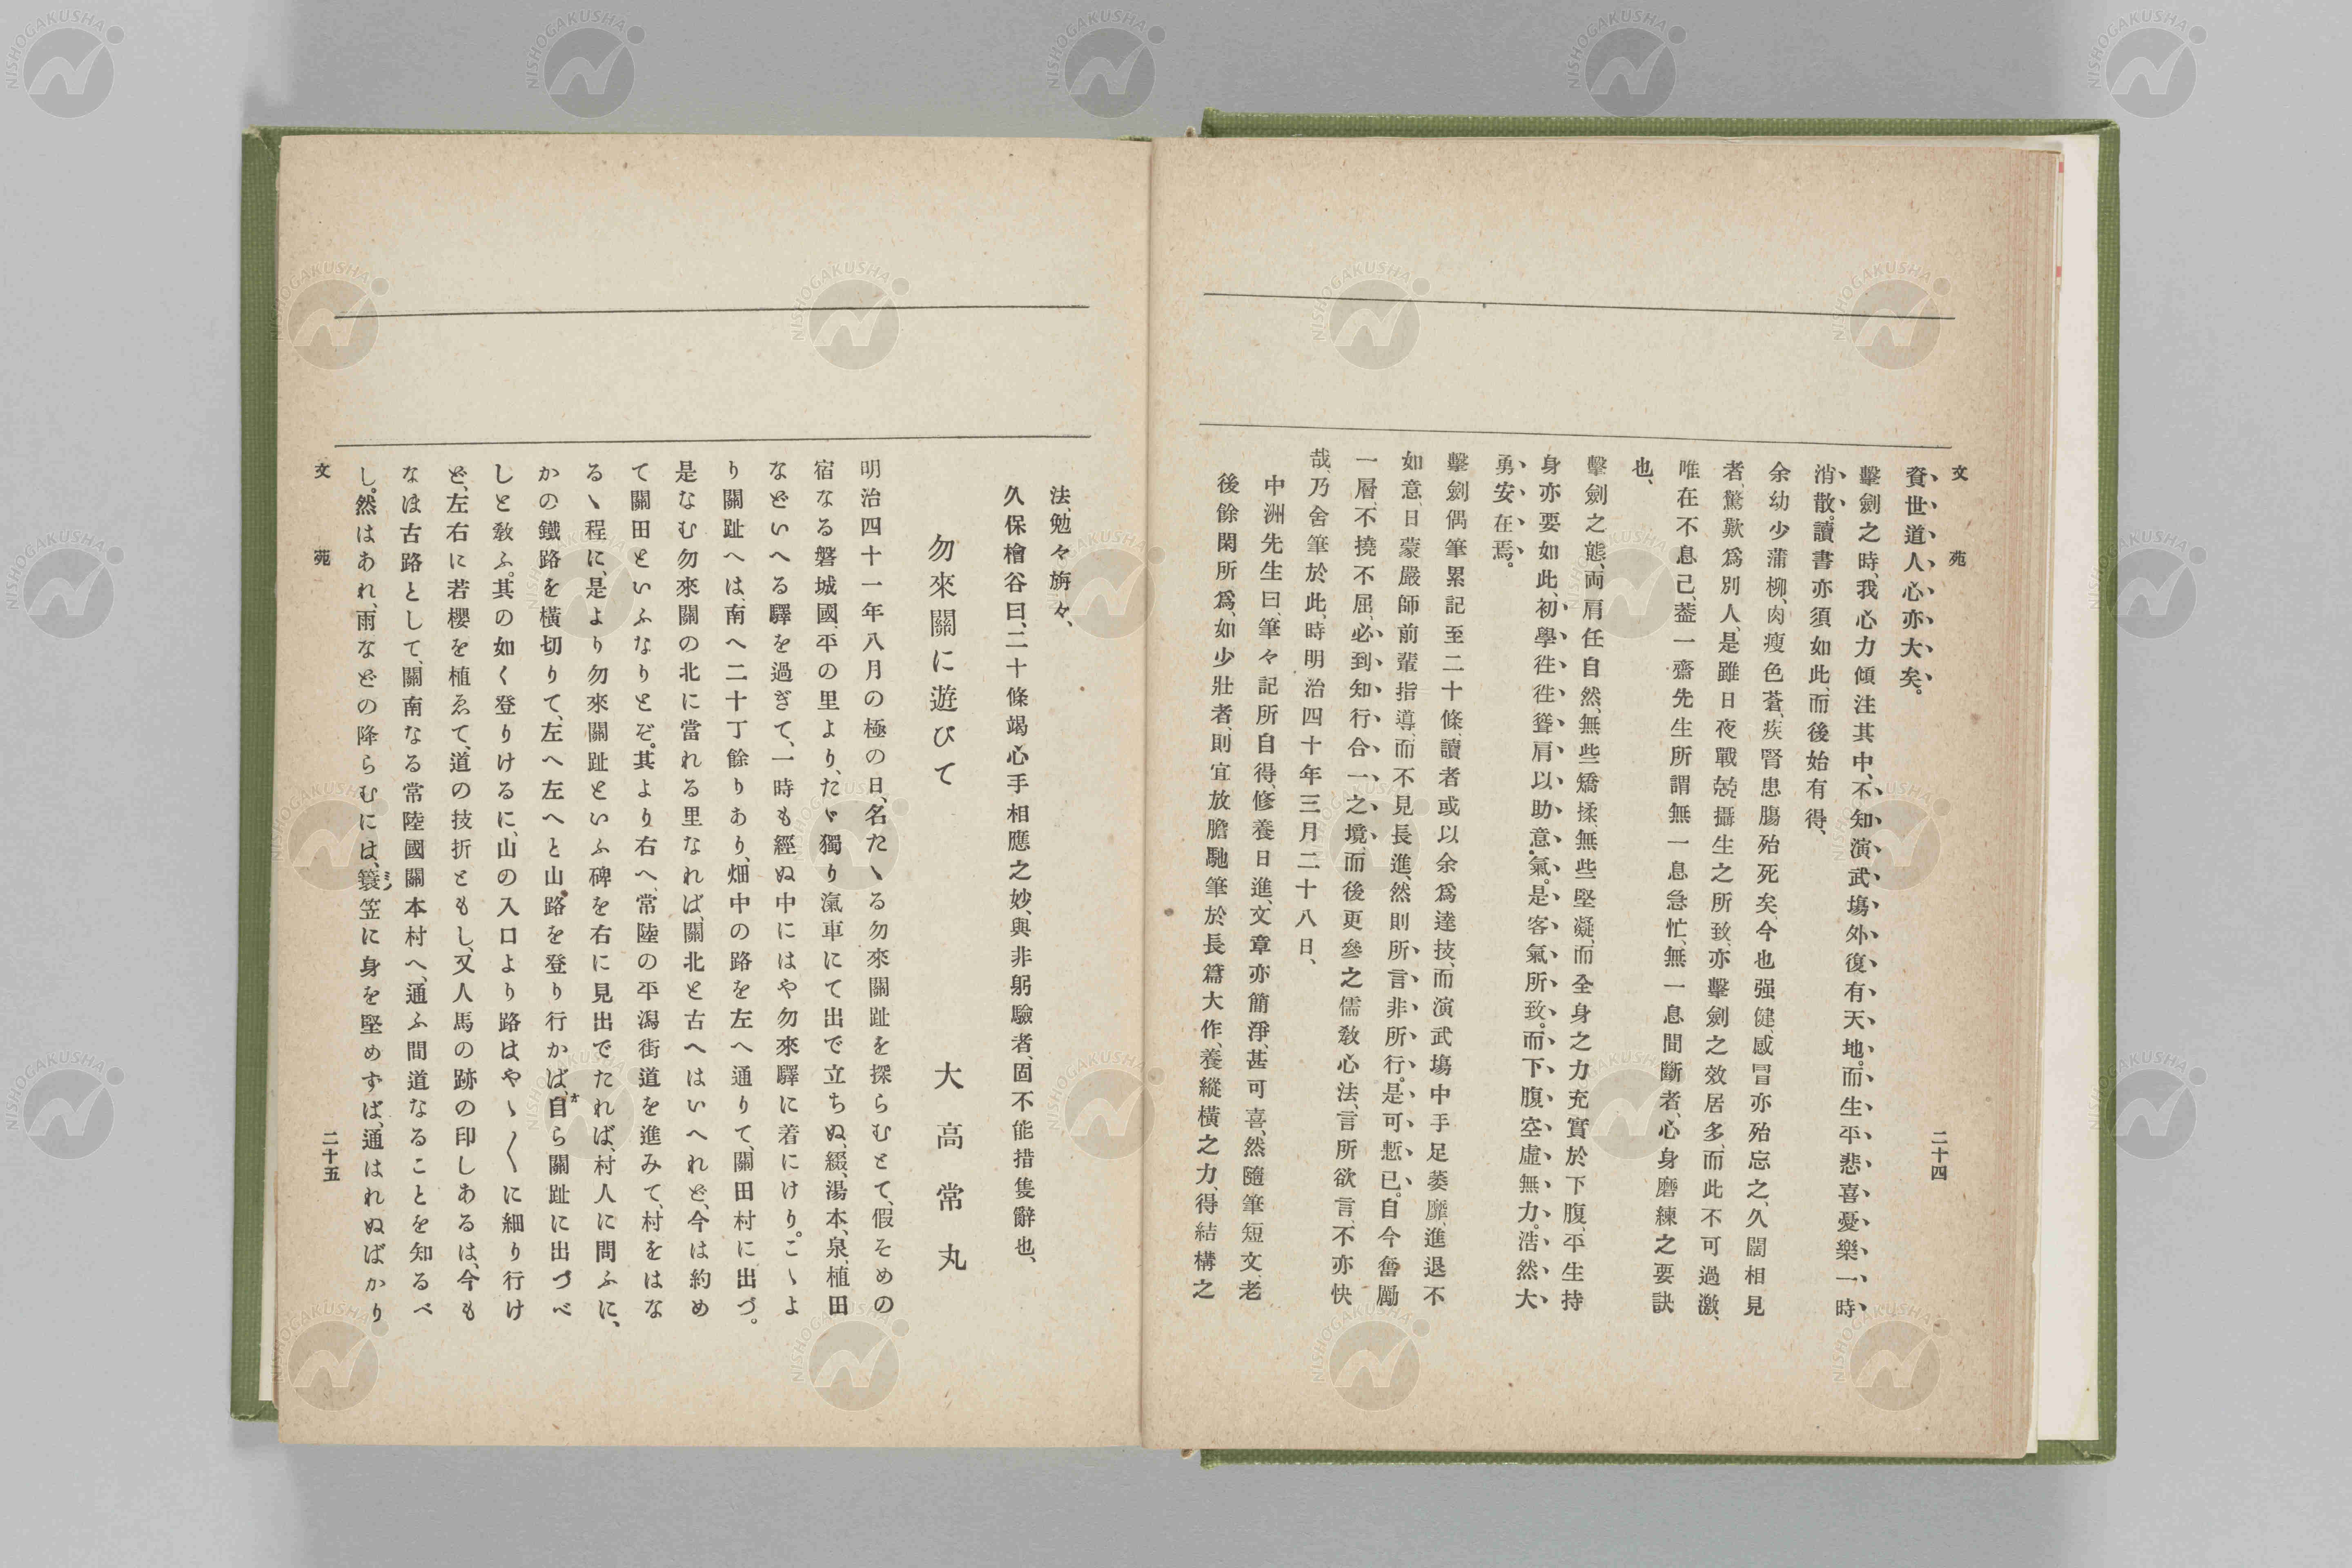 文苑
二十四
資世道人心亦大矣。
擊劍之時、我心力傾注其中、不知演武塲外、復有天地。而生平悲喜憂樂、一時
消散。讀書亦須如此、而後始有得、
余幼少蒲柳、肉瘦色蒼、疾腎患腸殆死矣、今也强健、感冒亦殆忘之、久闊相見
者、驚歎爲別人、是雖日夜戰兢攝生之所致、亦擊劍之效居多、而此不可過激、
唯在不息己、葢一齋先生所謂無一息急忙、無一息間斷者、心身磨練之要訣
也、
擊劍之態、両肩任自然、無些矯揉、無些堅凝、而全身之力充實於下腹、平生持
身亦要如此、初學徃徃聳肩以助意氣。是客氣所致。而下腹空虛無力。浩然大
勇安在焉。
擊劍偶筆累記至二十條、讀者或以余爲達技、而演武塲中手足萎靡、進退不
如意、日蒙嚴師前輩指導、而不見長進、然則所言非所行。是可慙已。自今奮勵
一層、不撓不屈、必到知行合一之境、而後更參之儒敎心法、言所欲言、不亦快
哉、乃舍筆於此、時明治四十年三月二十八日、
中洲先生曰、筆々記所自得、修養日進、文章亦簡淨、甚可喜、然隨筆短文、老
後餘閑所爲、如少壯者、則宜放膽馳筆於長篇大作、養縱橫之力、得結構之
法、勉々旃々、
久保檜谷曰、二十條竭心手相應之妙、與非躬驗者、固不能措隻辭也、
勿來關に遊びて
大高常丸
明治四十一年八月の極の日、名たゝる勿來關趾を探らむとて、假そめの
宿なる磐城國、平の里より、たゞ獨り滊車にて出で立ちぬ、綴、湯本、泉、植田
などいへる驛を過ぎて、一時も經ぬ中にはや勿來驛に着にけり。こゝよ
り關趾へは、南へ二十丁餘りあり、畑中の路を左へ通りて、關田村に出づ。
是なむ勿來關の北に當れる里なれば、關北と古へはいへれど、今は約め
て關田といふなりとぞ。其より右へ、常陸の平潟街道を進みて、村をはな
るゝ程に、是より勿來關趾といふ碑を右に見出でたれば、村人に問ふに、
かの鐵路を橫切りて、左へ左へと山路を登り行かば、自ら關趾に出づべ
しと敎ふ。其の如く登りけるに、山の入口より路はやゝ〱に細り行け
ど、左右に若櫻を植ゑて、道の技折ともし、又人馬の跡の印しあるは、今も
なほ古路として、關南なる常陸國關本村へ、通ふ間道なることを知るべ
し。然はあれ、雨などの降らむには、簑笠に身を堅めずば、通はれぬばかり
文苑
二十五